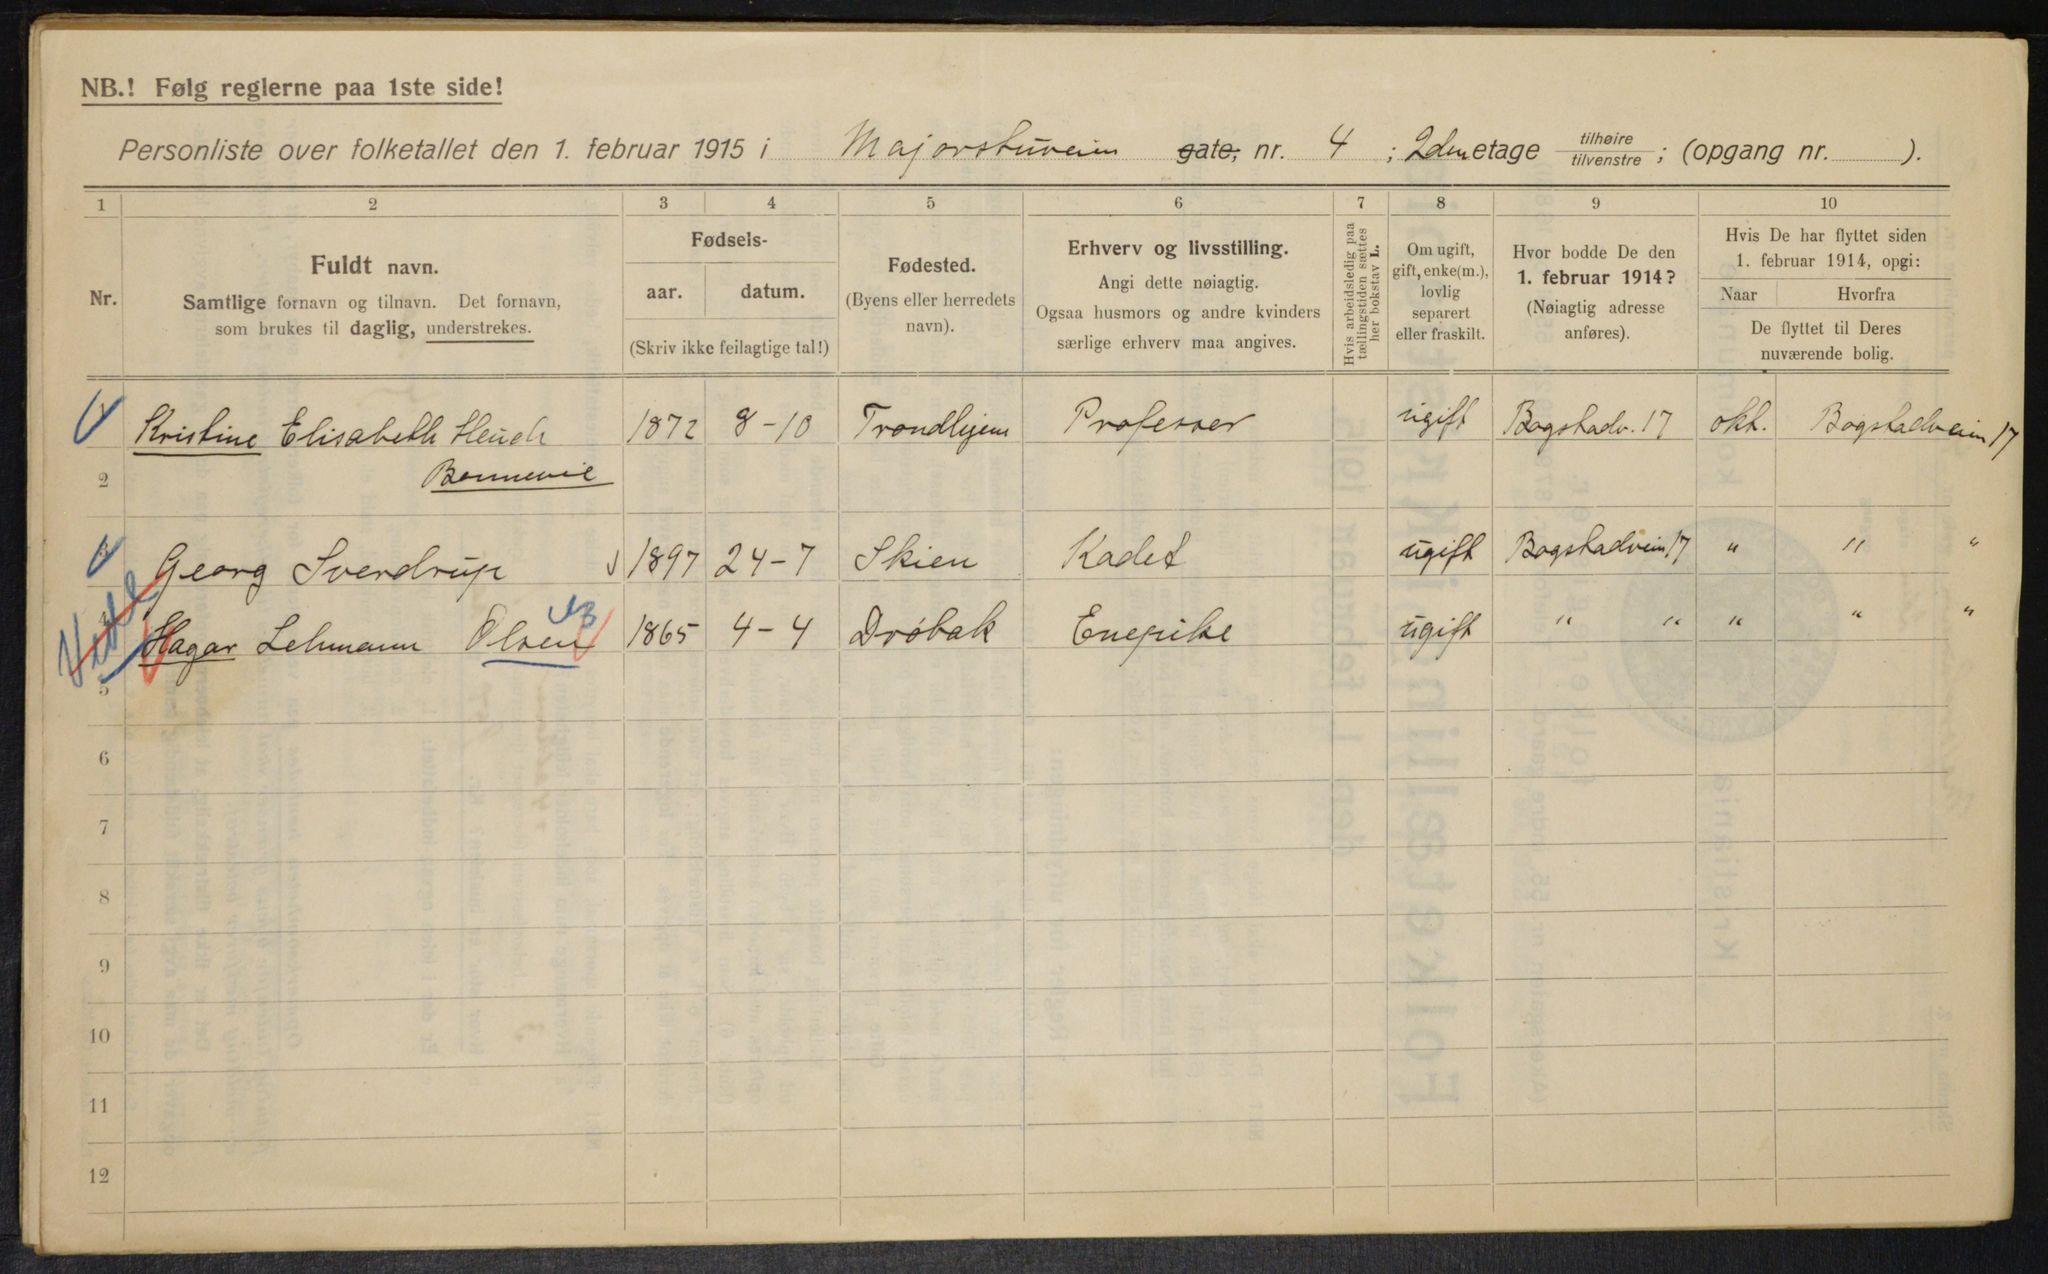 NB.! Følg reglerne paa 1ste side!
Personliste over folketallet den 1. februar 1915 i Majorstuveien gate, nr. 4 ; 2den etage tilhøire tilvenstre ; (opgang nr. ).
1 2 3 4 5 6 7 8 9 10
Nr.
Fuldt navn.
Samtlige fornavn og tilnavn. Det fornavn,
som brukes til daglig, understrekes.
Fødsels-
aar. datum.
(Skriv ikke feilagtige tal!)
Fødested.
(Byens eller herredets
navn).
Erhverv og livsstilling.
Angi dette nøiagtig.
Ogsaa husmors og andre kvinders
særlige erhverv maa angives.
Hvis arbeidsledig paa
tællingstiden sættes
her bokstav L.
Om ugift,
gift, enke(m.),
lovlig
separert
eller fraskilt.
Hvor bodde De den
1. februar 1914?
(Nøiagtig adresse
anføres).
Hvis De har flyttet siden
1. februar 1914, opgi:
Naar Hvorfra
De flyttet til Deres
nuværende bolig.
Kristine Elisabeth Heuch 1872 8-10 Trondhjem Professor ugift Bogstadv. 17 okt. Bogstadveien 17
2 Bonnevie
Georg Sverdrup 1897 24-7 Skien Kadet ugift Bogstadveien 17 " " "
Hagar Lehmann Olsen 1865 4-4 Drøbak Enepike ugift " " " " "
5
6
7
8
9
10
11
12